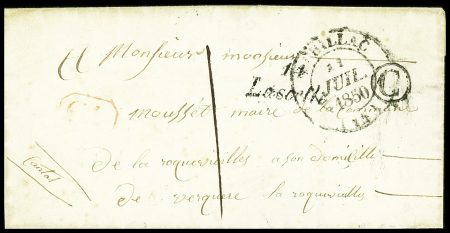 A Monsieur monsieur
mousset maire de la commune
de la roquevieille a son domicille
de verquere la roquevieille
Cantal
1
14
Lascelle
11
JUIL
1850
(14)
C